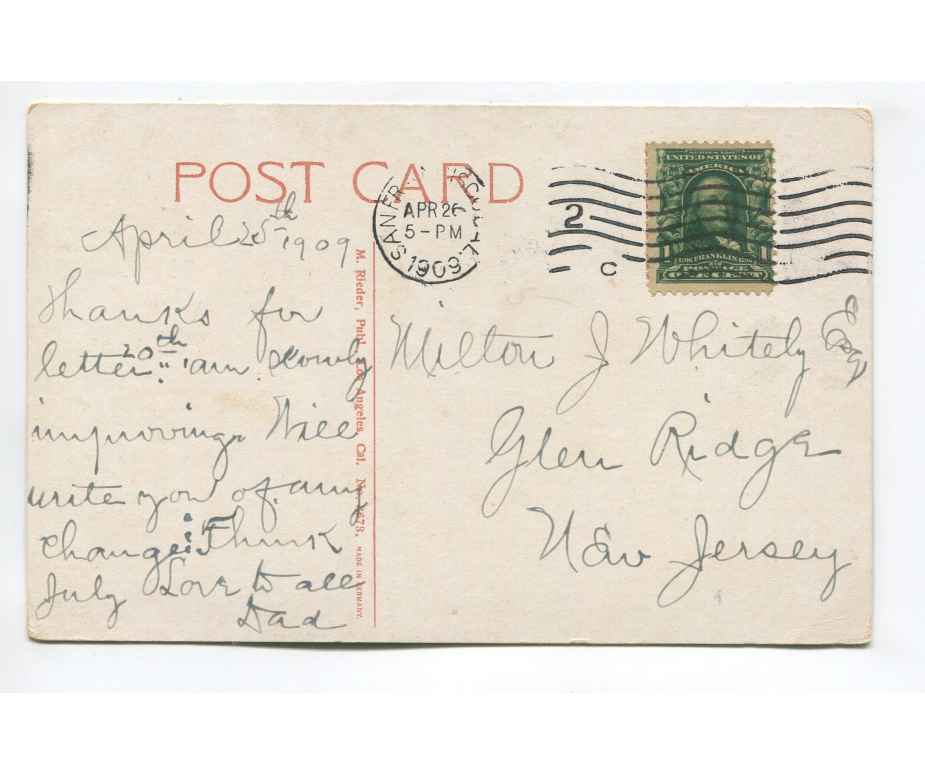 POST CARD
April 25th 1909
Thanks for
letter 20th " am slowly
improving. Will
write you of any
change. I Think
July Love to all
Dad
M. Rieder, Publ. Los Angeles, Cal. No. 
MADE IN GERMANY.
SAN FR CAL
APR 26
5-PM
1909
2
C
UNITED STATES OF
AMERICA
FRANKLIN
Milton J Whitely Esq
Glen Ridge
New Jersey